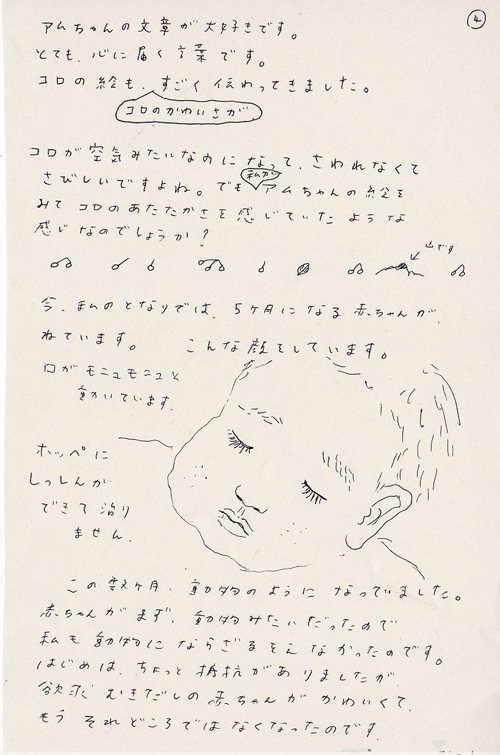 ④
アムちゃんの文章が大好きです。
とても、心に届く言葉です。
コロの絵も、すごく伝わってきました。
コロのかわいさが
コロが空気みたいなのになって、さわれなくて
さびしいですよね。でもアムちゃんの絵を
私が
みてコロのあたたかさを感じていたような
感じなのでしょうか?
山です
今、私のとなりでは、5ヶ月になる赤ちゃんが、
ねています。 こんな顔をしています。
口がモニュモニュと
動いています。
ホッペに
しっしんが
できて治り
ません。
この数ヶ月、動物のようになっていました。
赤ちゃんがまず、動物みたいだったので
私も動物にならざるをえなかったのです。
はじめは、ちょっと抵抗がありましたが、
欲求むきだしの赤ちゃんがかわいくて、
もうそれどころではなくなったのです。